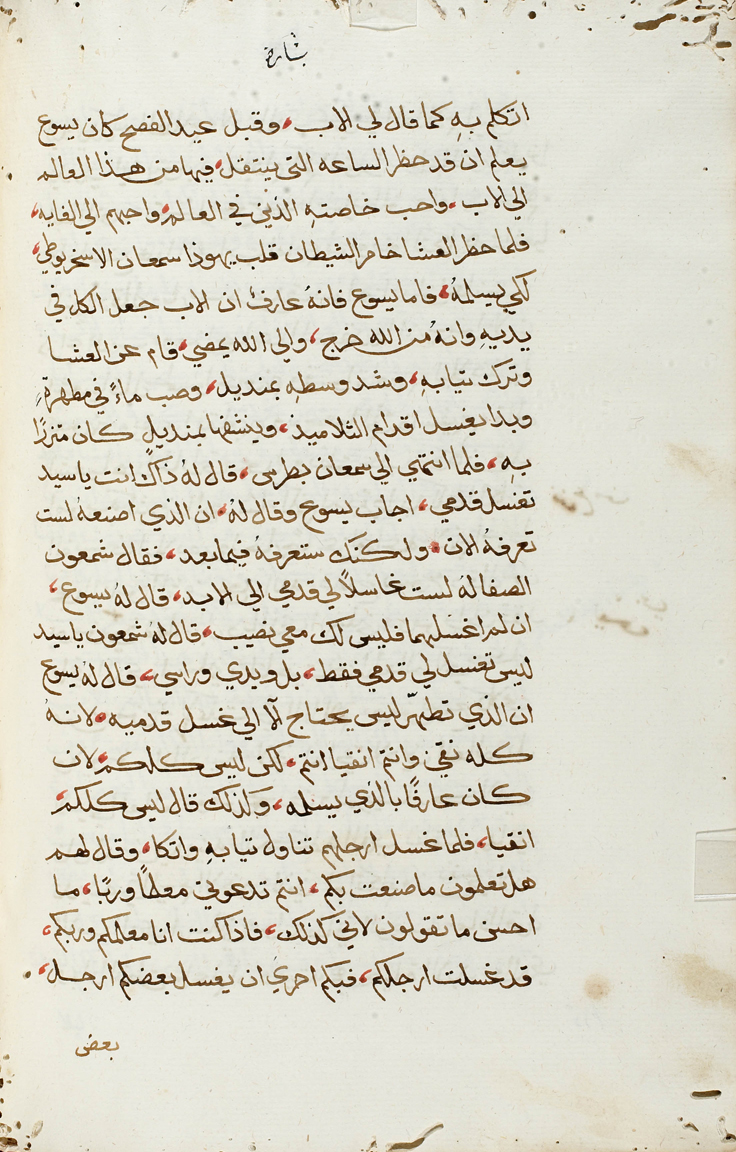 بشارة
اتكلم بهِ كما قال لي الاب، وقبل عيد الفصح كان يسوع
يعلم ان قد حظر الساعه التي ينتقل، فيها من هذا العالم
الي الاب، واحب خاصتهِ الذين في العالم، واحبهم الي الغايه،
فلما حظر العشا خامر الشيطان قلب يهوذا سمعان الاسخريوطي،
لكي يسلمهُ، فاما يسوع فانهُ عارف ان الاب جعل الكل في
يديهِ وانهُ من الله خرج، والي الله يمضي، قام عن العشا
وترك تيابهِ، وشد وسطهِ بمنديل، وصب ماءً في مطهرةٍ
وبدا يغسل اقدام التلاميذ، وينشفها بمنديلٍ كان متزرًا
بهِ، فلما انتهي الي سمعان بطرس، قال لهُ ذاك انت ياسيد
تغسل قدمي، اجاب يسوع وقال لهُ، ان الذي اصنعهُ لست
تعرفهُ الان، ولكنك ستعرفهُ فيما بعد، فقال شمعون
الصفا لهُ لست غاسلاً لي قدمي الي الابد، قال لهُ يسوع،
ان لم اغسلهما فليس لك معي نصيب، قال لهُ شمعون ياسيد
ليس تغسل لي قدمي فقط، بل ويدي وراسي، قال لهُ يسوع
ان الذي تطهّر ليس يحتاج الّا الي غسل قدميه، لانهُ
كله نقي وانتم انقيا انتم، لكن ليس كلكم، لان
كان عارفًا بالذي يسلمه، ولذلك قال ليس كلكم،
انقيا، فلما غسل ارجلهم تناول تيابهِ واتكا، وقال لهم
هل تعلمون ما صنعت بكم، انتم تدعوني معلمًا وربًا، ما
احسن ما تقولون لاني كذلك، فاذا كنت انا معلمكم وربكم،
قد غسلت ارجلكم، فبكم احري ان يغسل بعضكم ارجل،
بعض